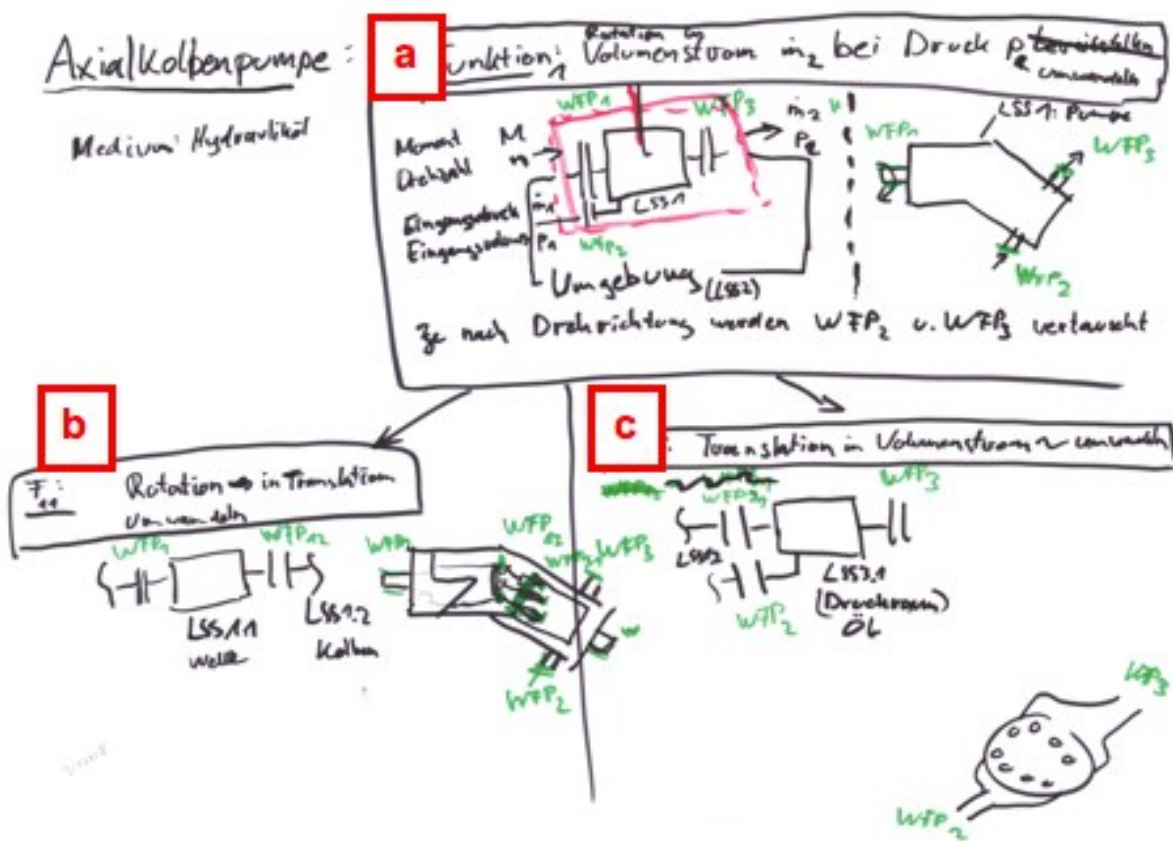 Axialkolbenpumpe:
Medium: Hydrauliköl
a
Funktion: Rotation in Volumenstrom ṁ₂ bei Druck p₂ bereitstellen
umwandeln
WFP₁
WFP₃
Moment M
Drehzahl n
ṁ₂
p₂
LSS1
Eingangsdruck ṁ₁
p₁
WFP₂
Umgebung (LSS2)
WFP₁
LSS1: Pumpe
WFP₃
WFP₂
Je nach Drehrichtung werden WFP₂ u. WFP₃ vertauscht
b
F₁₁: Rotation in Translation
umwandeln
WFP₁
WFP₁₂
LSS1.1
Welle
LSS1.2
Kolben
WFP₁
WFP₁₂
WFP₃
WFP₂
c
: Translation in Volumenstrom umwandeln
WFP₃
LSS1.2
WFP₂
LSS3.1
(Druckraum)
ÖL
WFP₃
WFP₂